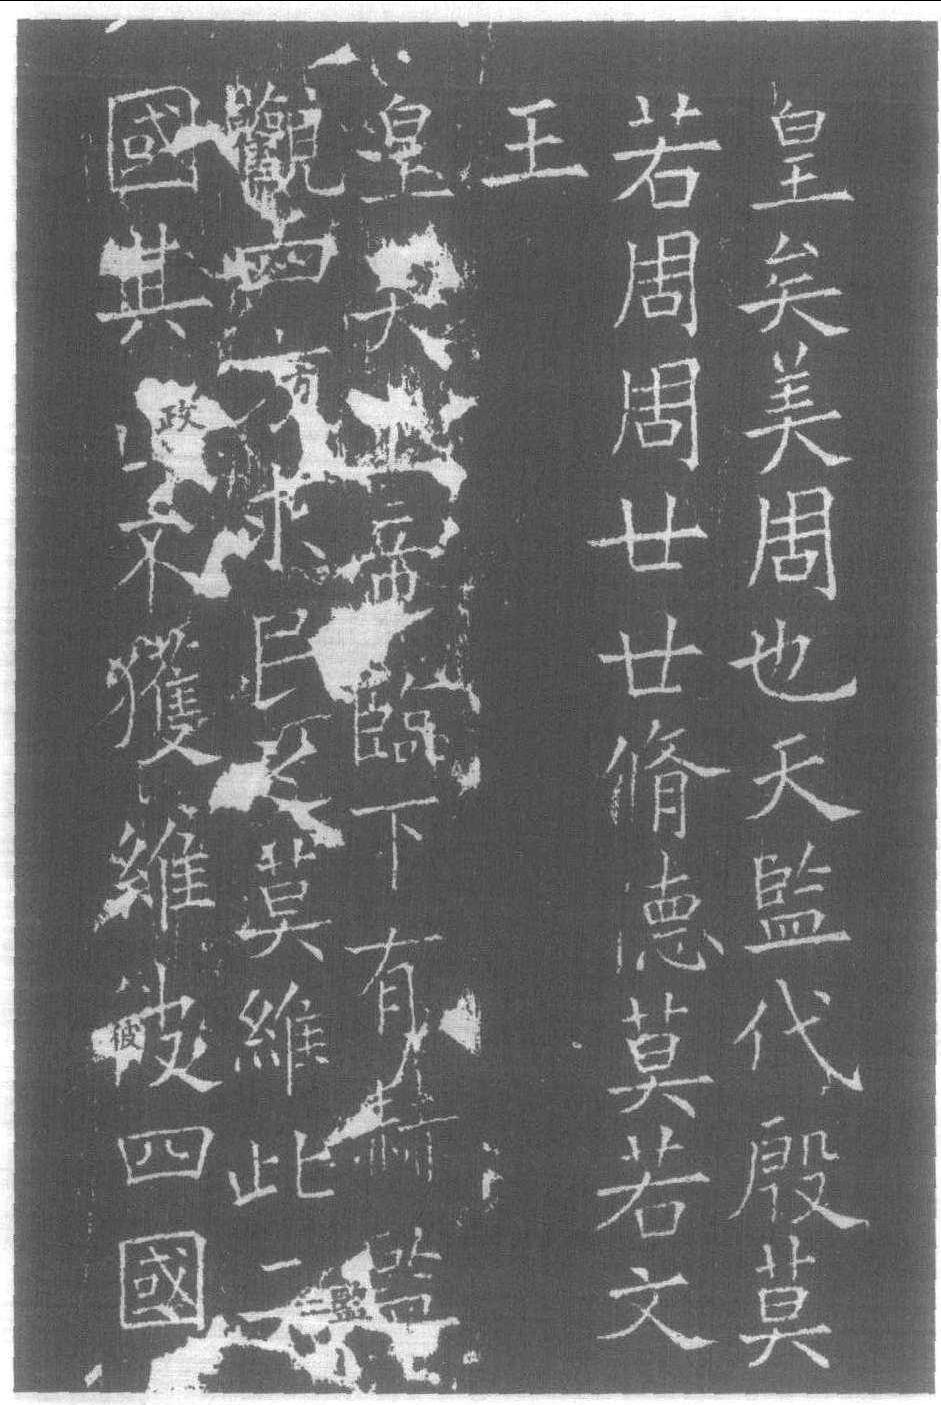 皇矣美周也天監代殷莫
若周周廿廿脩德莫若文
王
皇矣上帝臨下有赫監
觀四方求民之莫維此二
方
國其政不獲維彼四國
政
彼